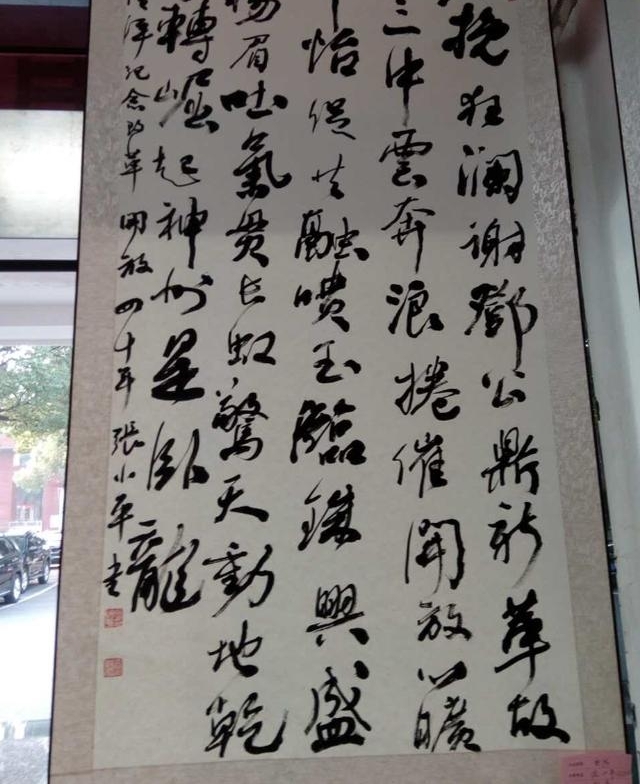 挽狂澜谢鄧公鼎新革故
三中雲奔浪捲催開放心曠
怡促共融噴玉臨興盛
揚眉吐氣貫长虹驚天動地乾
轉崛起神州是卧龍
纪念改革開放四十年張小平书